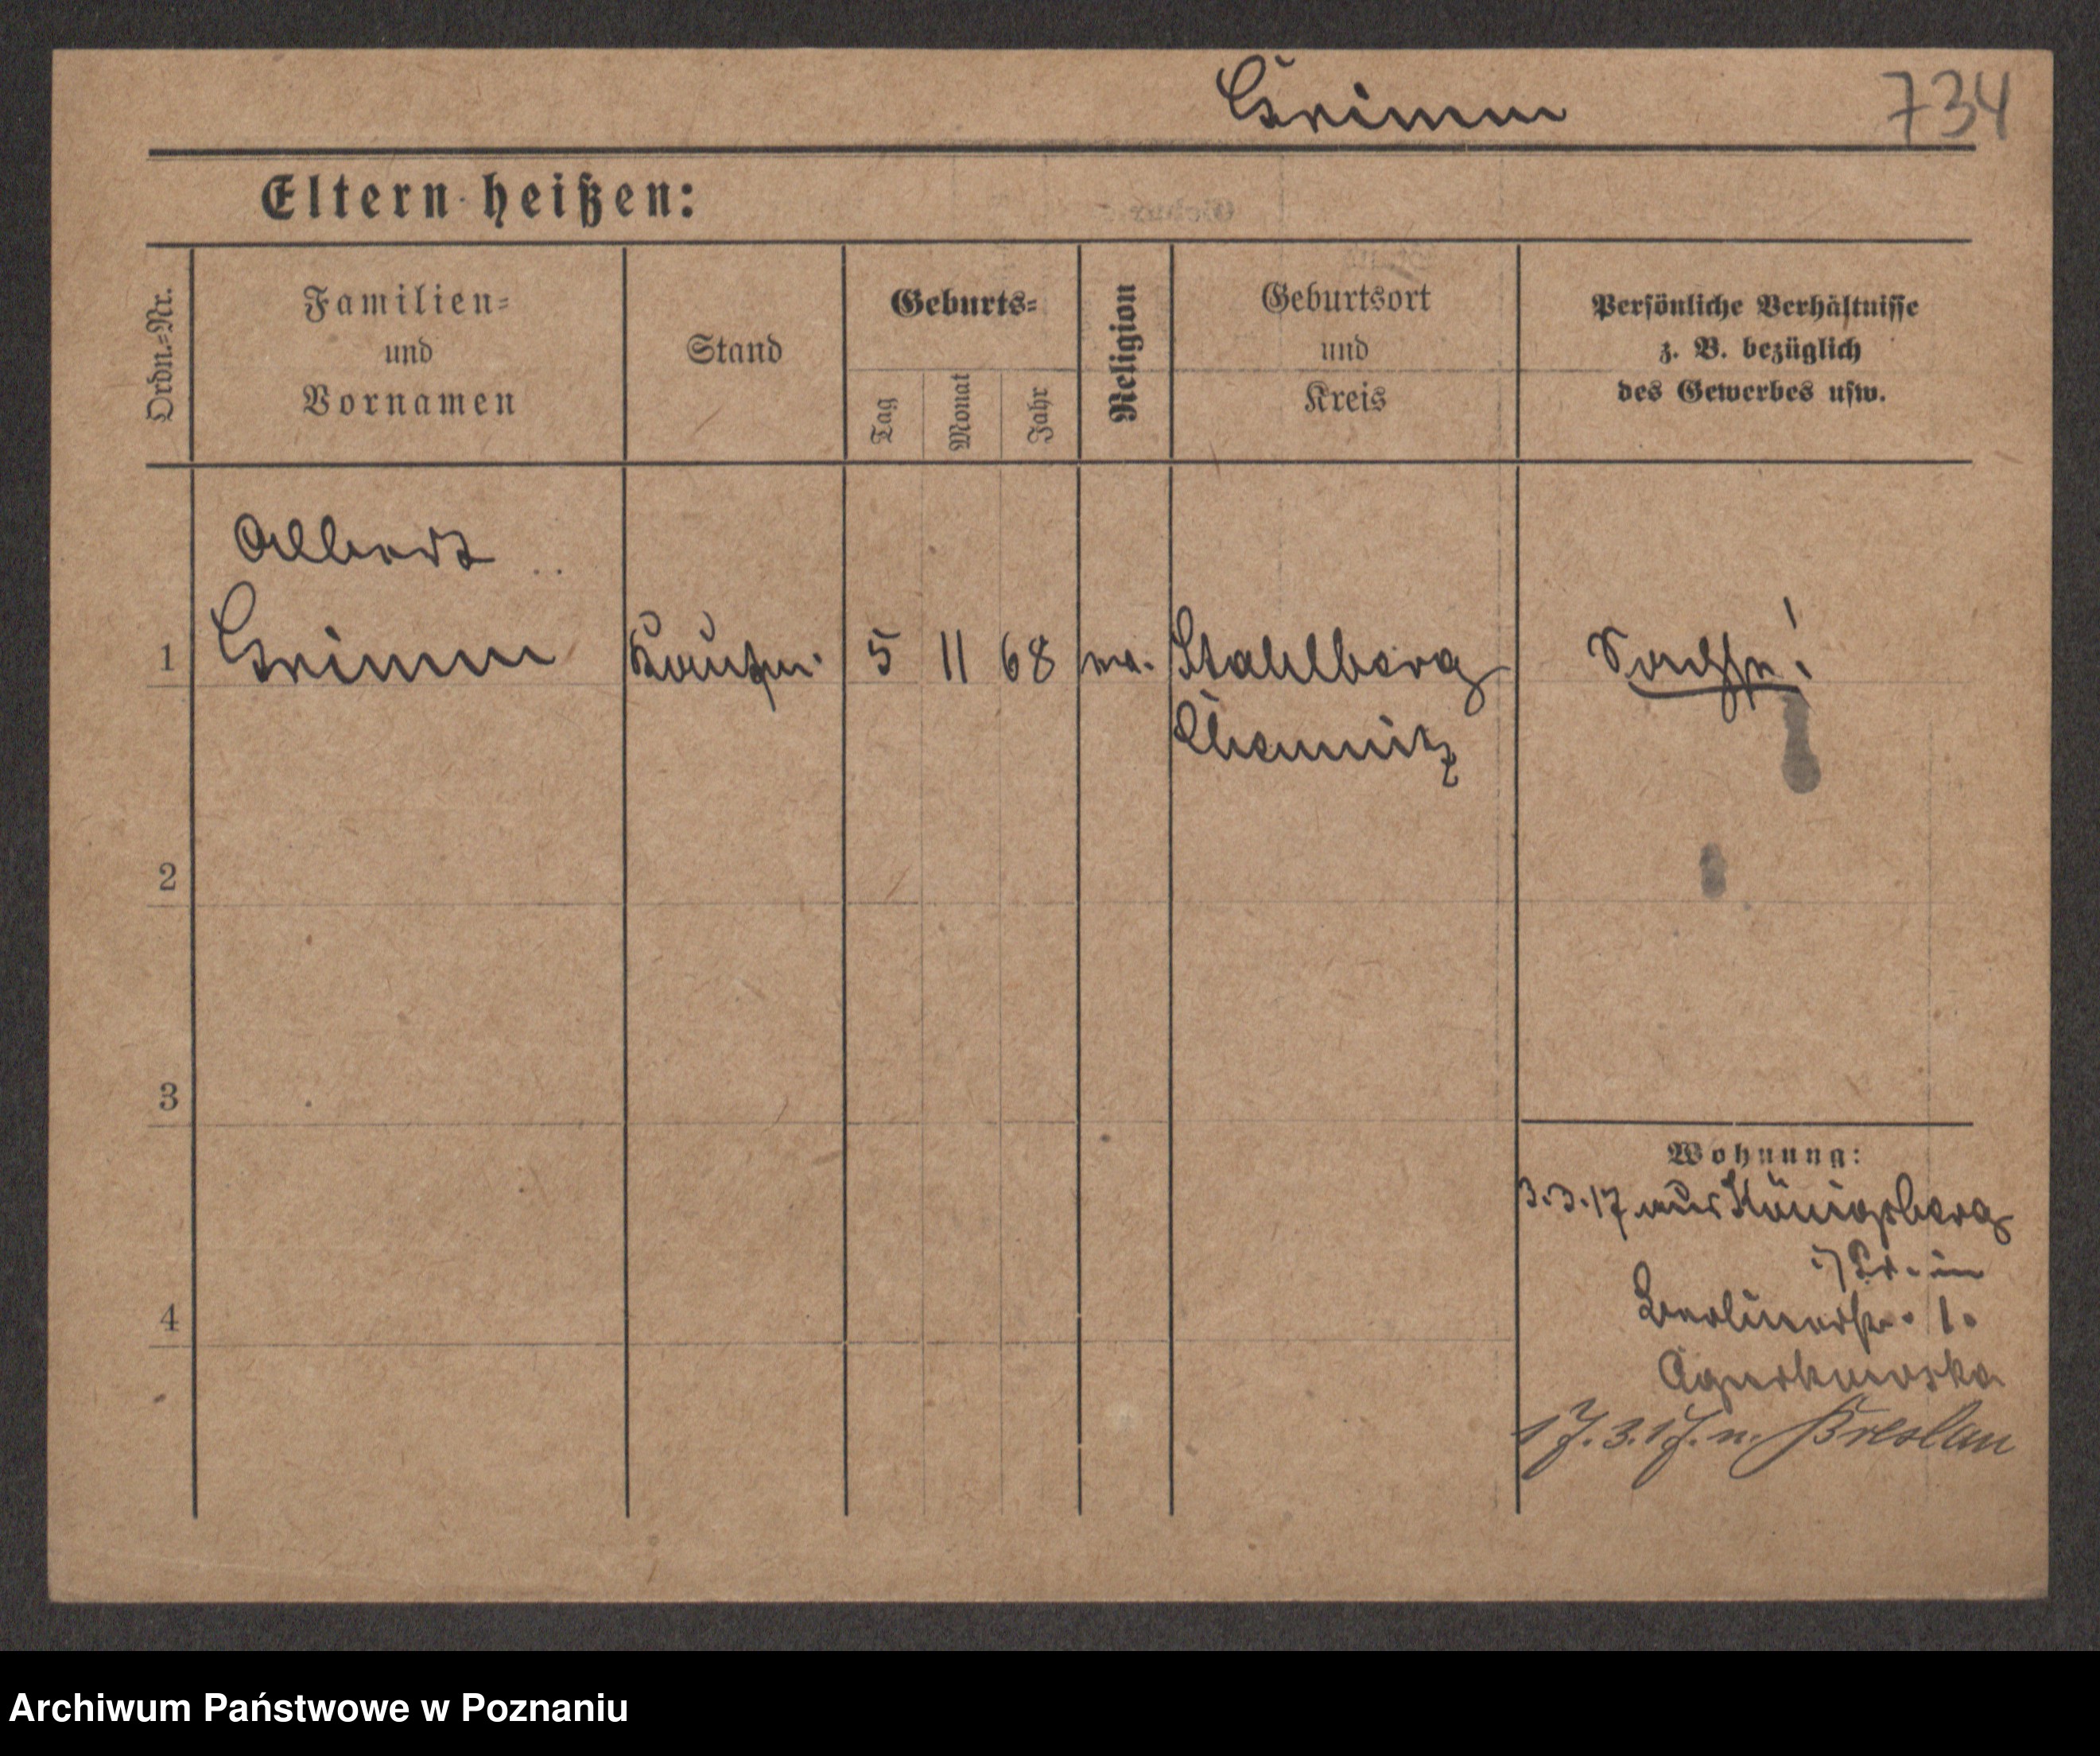 Grimm 734
Eltern heißen:
Ordn.-Nr.
Familien-
und
Vornamen
Stand
Geburts-
Tag
Monat
Jahr
Religion
Geburtsort
und
Kreis
Persönliche Verhältnisse
z. B. bezüglich
des Gewerbes usw.
Albert
1 Grimm Kaufm. 5 11 68 ev. Stahlberg Sachse!
Chemnitz
2
3
4
Wohnung:
3.3.17 aus Königsberg
i/Pr. in
Berlinerstr. 1.
17.3.17. n. Breslau
Archiwum Państwowe w Poznaniu